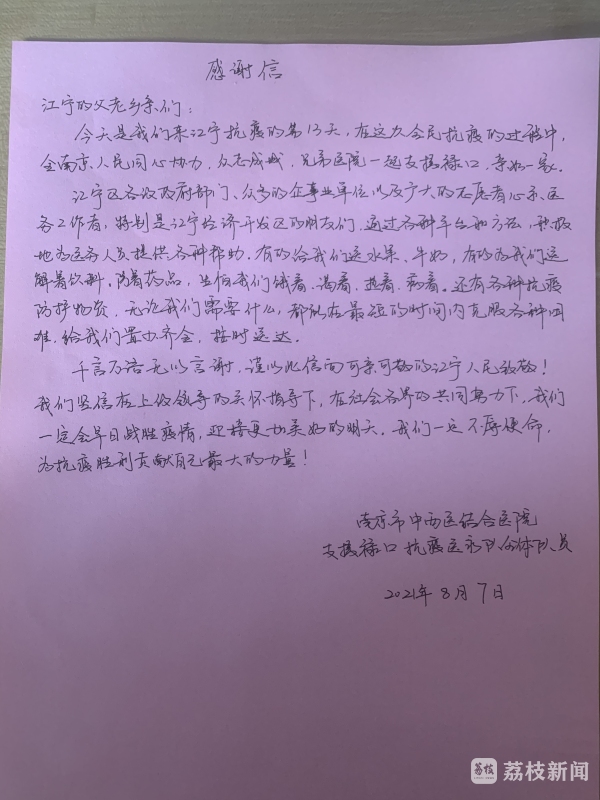 感谢信
江宁的父老乡亲们：
今天是我们来江宁抗疫的第13天，在这次全民抗疫的过程中，
全南京人民同心协力，众志成城，兄弟医院一起支援禄口，亲如一家。
江宁区各级政府部门、众多的企事业单位以及广大的志愿者心系医
务工作者，特别是江宁经济开发区的朋友们，通过各种平台和方法，积极
地为医务人员提供各种帮助。有的给我们送水果、牛奶，有的为我们送
解暑饮料、防暑药品，生怕我们饿着、渴着、热着、病着。还有各种抗疫
防护物资，无论我们需要什么，都能在最短的时间内克服各种困
难，给我们置办齐全，按时送达。
千言万语无以言谢，谨以此信向可亲可敬的江宁人民致敬！
我们坚信在上级领导的关怀指导下，在社会各界的共同努力下，我们
一定会早日战胜疫情，迎接更加美好的明天。我们一定不辱使命，
为抗疫胜利贡献自己最大的力量！
南京市中西医结合医院
支援禄口抗疫医疗队全体队员
2021年8月7日
荔枝 荔枝新闻